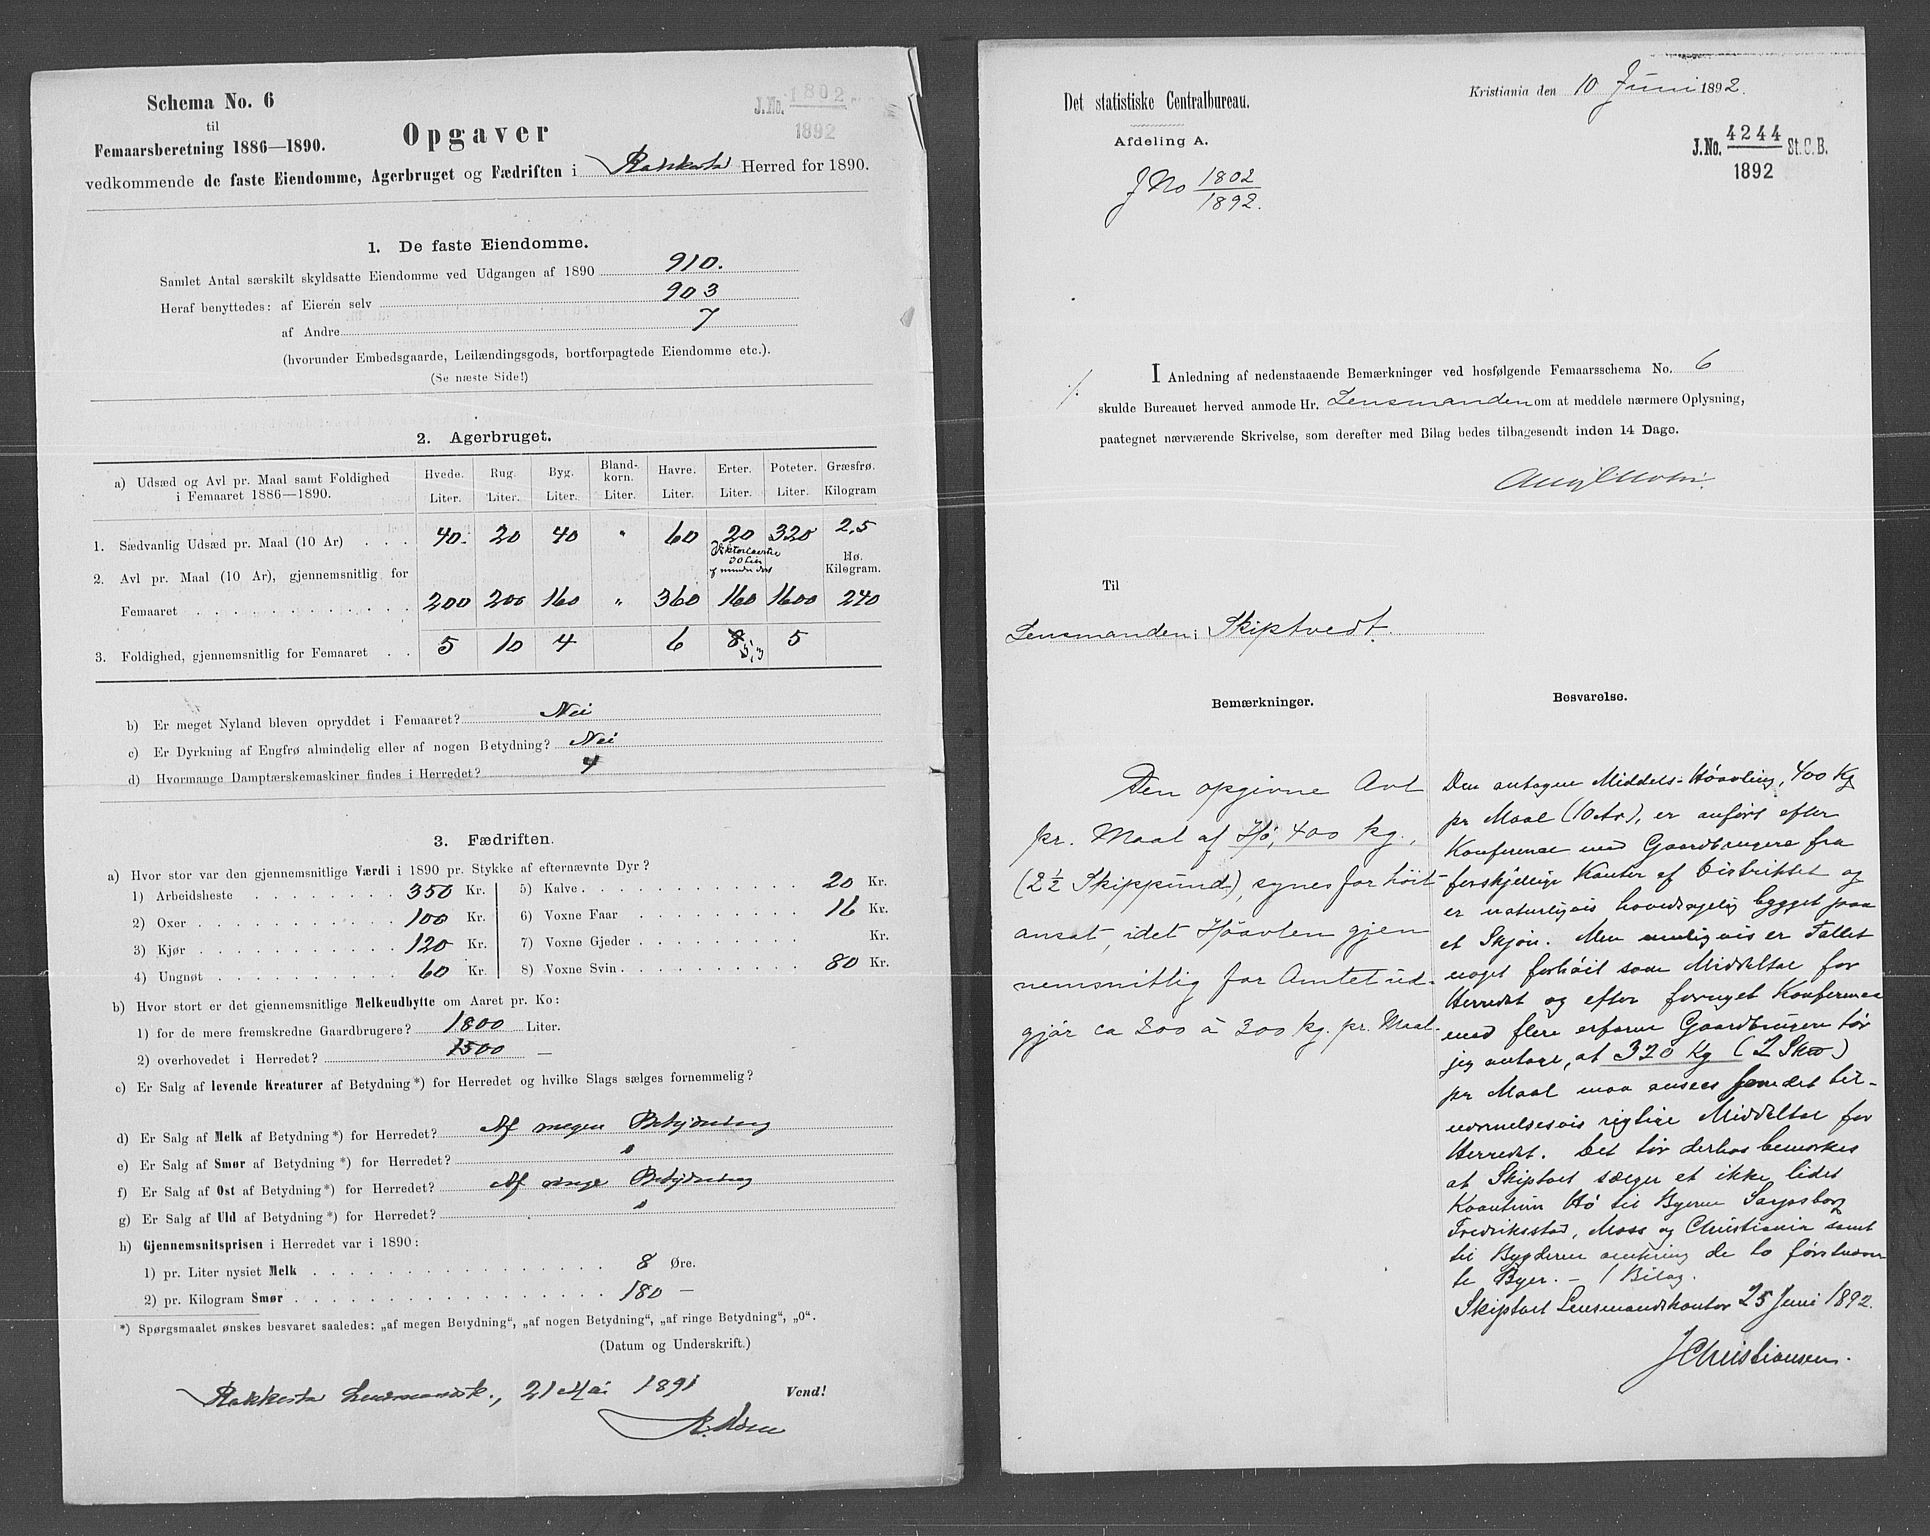 Schema No. 6
til
Femaarsberetning 1886—1890.
J.No. 1802 St.C.B.
1892
Opgaver
vedkommende de faste Eiendomme, Agerbruget og Fædriften i Rakkestad Herred for 1890.
1. De faste Eiendomme.
Samlet Antal særskilt skyldsatte Eiendomme ved Udgangen af 1890 910.
Heraf benyttedes: af Eieren selv 903
af Andre 7
(hvorunder Embedsgaarde, Leilændingsgods, bortforpagtede Eiendomme etc.).
(Se næste Side!)
2. Agerbruget.
a) Udsæd og Avl pr. Maal samt Foldighed
i Femaaret 1886—1890.
Hvede. Rug. Byg. Bland-korn. Havre. Erter. Poteter. Græsfrø.
Liter. Liter. Liter. Liter. Liter. Liter. Liter. Kilogram
1. Sædvanlig Udsæd pr. Maal (10 Ar) 40. 20 40 " 60 20 320 2,5
Viktoriaerter
30 Liter
Hø.
Kilogram.
2. Avl pr. Maal (10 Ar), gjennemsnitlig for
Femaaret 200 200 160 " 360 160 1600 240
3. Foldighed, gjennemsnitlig for Femaaret 5 10 4 6 8 5,3 5
b) Er meget Nyland bleven opryddet i Femaaret? Nei
c) Er Dyrkning af Engfrø almindelig eller af nogen Betydning? Nei
d) Hvormange Damptærskemaskiner findes i Herredet? 4
3. Fædriften.
a) Hvor stor var den gjennemsnitlige Værdi i 1890 pr. Stykke af efternævnte Dyr?
1) Arbeidsheste 350 Kr. 5) Kalve 20 Kr.
2) Oxer 100 Kr. 6) Voxne Faar 16 Kr.
3) Kjør 120 Kr. 7) Voxne Gjeder Kr.
4) Ungnøt 60 Kr. 8) Voxne Svin 80 Kr.
b) Hvor stort er det gjennemsnitlige Melkeudbytte om Aaret pr. Ko:
1) for de mere fremskredne Gaardbrugere? 1800 Liter.
2) overhovedet i Herredet? 1500 —
c) Er Salg af levende Kreaturer af Betydning*) for Herredet og hvilke Slags sælges fornemmelig?
d) Er Salg af Melk af Betydning*) for Herredet? Af megen Betydning
e) Er Salg af Smør af Betydning*) for Herredet? "
f) Er Salg af Ost af Betydning*) for Herredet? Af ringe Betydning
g) Er Salg af Uld af Betydning*) for Herredet? "
h) Gjennemsnitsprisen i Herredet var i 1890:
1) pr. Liter nysiet Melk 8 Øre.
2) pr. Kilogram Smør 180 —
*) Spørgsmaalet ønskes besvaret saaledes: „af megen Betydning“, „af nogen Betydning“, „af ringe Betydning“, „0“.
(Datum og Underskrift.)
Rakkestad Lensmandsk., 21 Mai 1891
Vend!
Det statistiske Centralbureau.
Afdeling A.
J No 1802
1892.
Kristiania den 10 Juni 1892.
J.No. 4244 St.C.B.
1892
I Anledning af nedenstaaende Bemærkninger ved hosfølgende Femaarsschema No. 6
skulde Bureauet herved anmode Hr. Lensmanden om at meddele nærmere Oplysning,
paategnet nærværende Skrivelse, som derefter med Bilag bedes tilbagesendt inden 14 Dage.
Til
Lensmanden i Skiptvedt.
Bemærkninger.
Den opgivne Avl
pr. Maal af Hø, 400 kg.,
(2½ Skippund), synes for høit
ansat, idet Høavlen gjen
nemsnitlig for Amtet ud-
gjør ca 200 à 300 kg. pr. Maal.
Besvarelse.
Den antagne Middels-Høavling, 400 Kg
pr Maal (10 Ar), er anført efter
Konference med Gaardbrugere fra
forskjellige Kanter af Distriktet og
er naturligvis hovedsagelig bygget paa
et Skjøn. Men muligvis er Tallet
noget forhøit som Middeltal for
Herredet og efter fornyet Konference
med flere erfarne Gaardbrugere tør
jeg antage, at 320 Kg (2 Skt)
pr Maal maa ansees som det til-
nærmelsesvis rigtige Middeltal for
Herredet. Det tør derhos bemærkes
at Skiptvet sælger et ikke lidet
Kvantum Hø til Byerne Sarpsborg
Fredriksstad, Moss og Christiania samt
til Bygderne omkring de to førstnævn
te Byer. — 1 Bilag.
Skiptvet Lensmandskontor 25 Juni 1892.
J Christiansen.